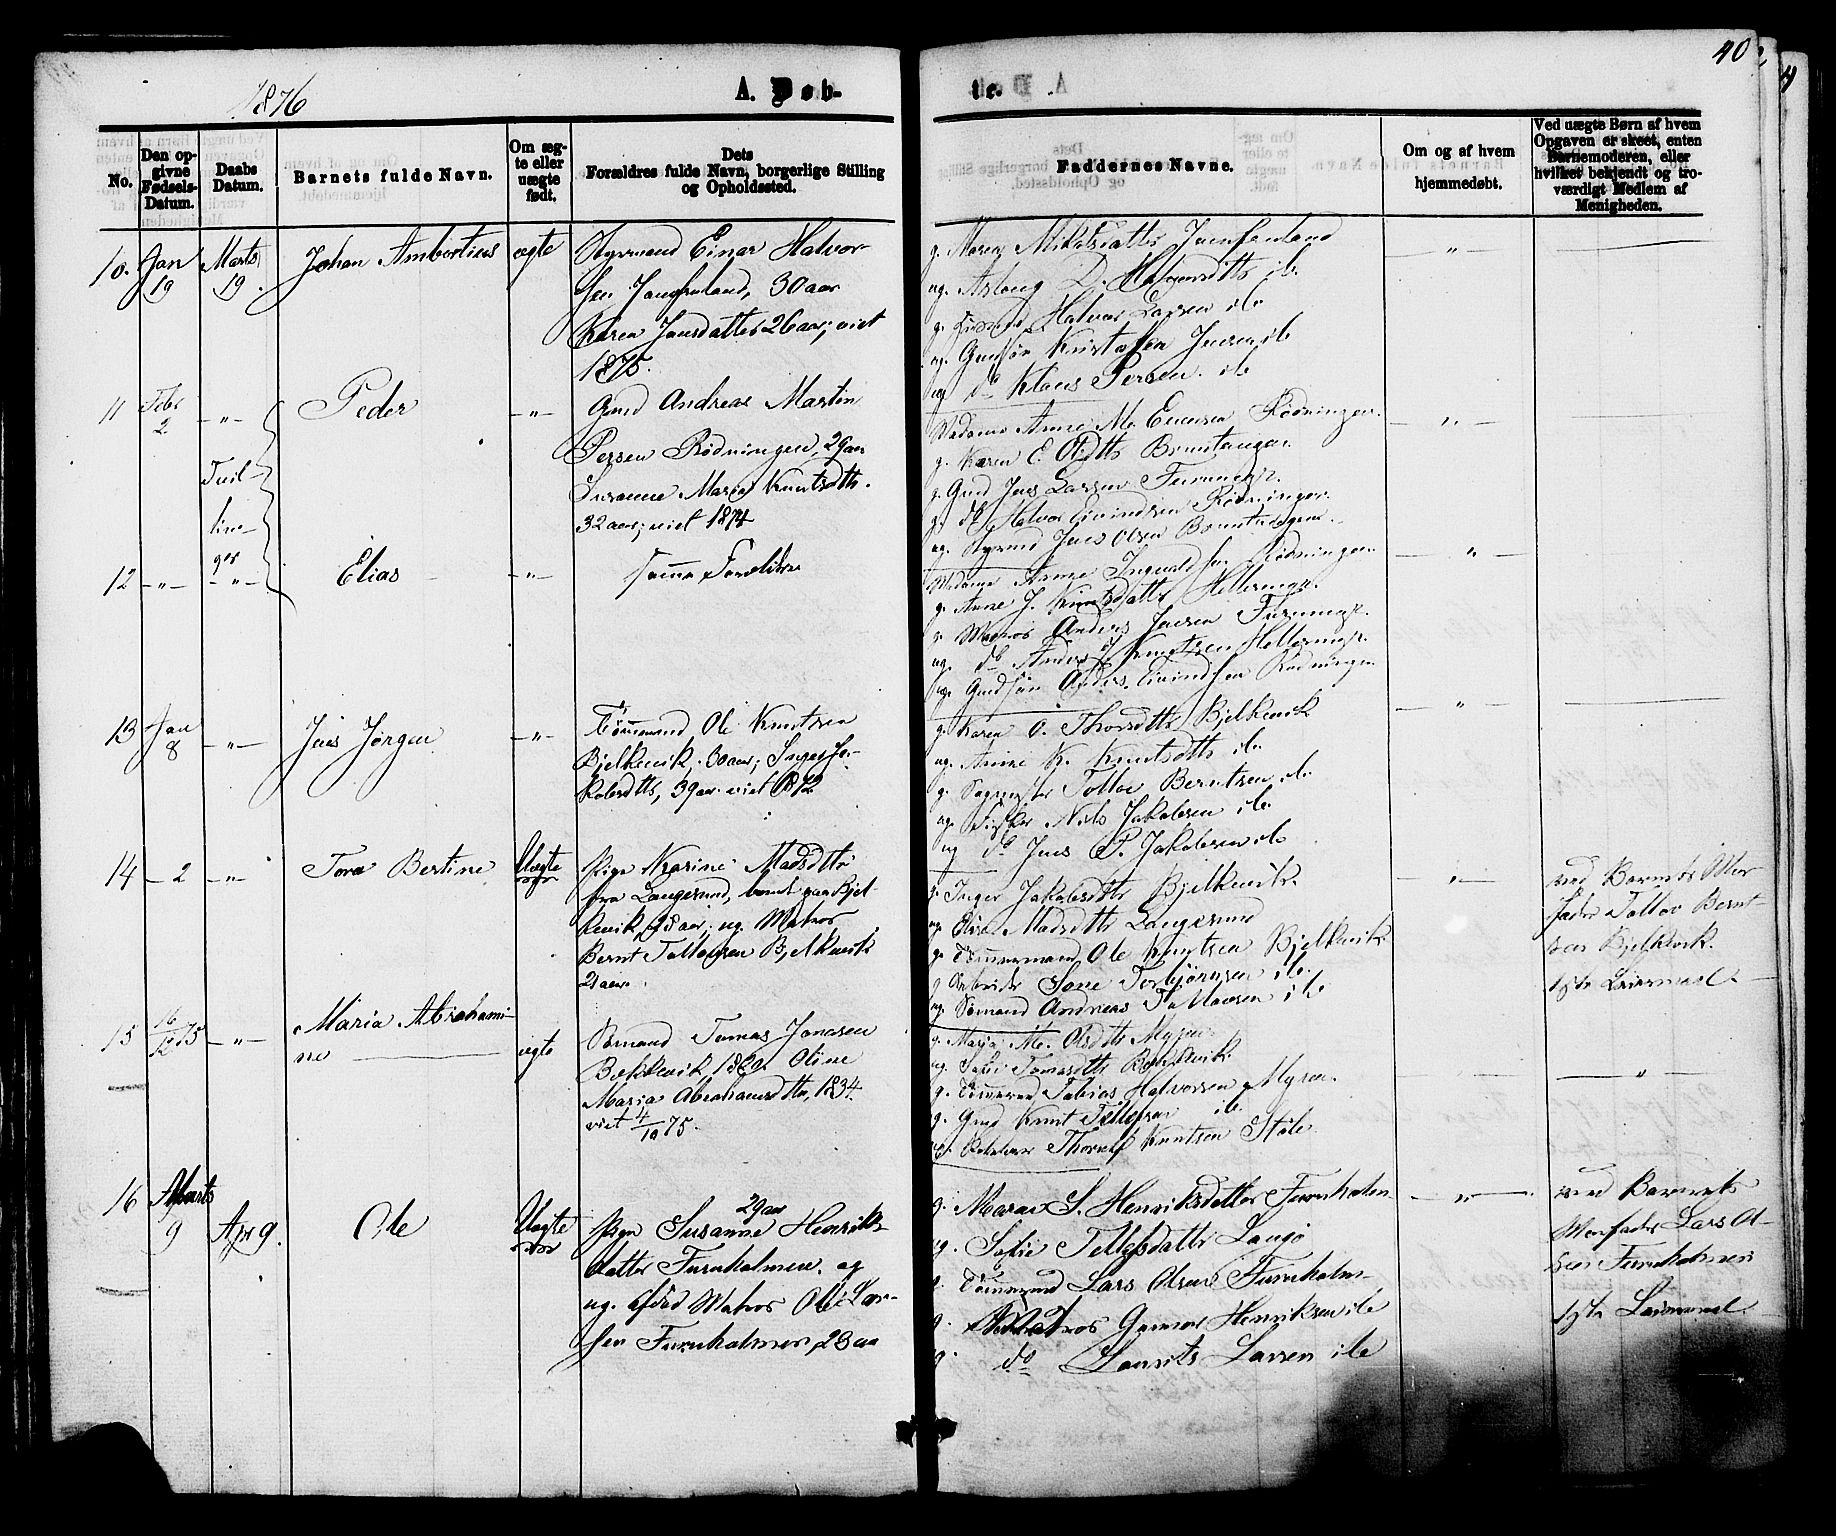 1876
A. Døb-
te.
40
No.
Den opgivne Fødsels-Datum.
Daabs Datum.
Barnets fulde Navn.
Om ægte eller uægte født.
Dets Forældres fulde Navn, borgerlige Stilling og Opholdssted.
Faddernes Navne.
Om og af hvem hjemmedøbt.
Ved uægte Børn af hvem Opgaven er skeet, enten Barnemoderen, eller hvilket bekjendt og troværdigt Medlem af Menigheden.
10. Jan 19 Marts 19. Johan Ambortius ægte
Styrmand Einar Halvor-
sen Jomfruland, 30 aar
Karen Jansdatter 26 aar; viet
1875.
g. Maren Nikolsdatter Jomfruland
ug. Aslaug D. Halvorsdtts ib.
Halvor Larsen ib
ug. Gmdsøn Kristoffer Jensen ib
ug do Klaus Persen. ib
"
11 Febr 2 -"- Peder -"-
Gmd Andreas Martin
Persen Rødningen, 29 aar
Susanne Maria Knutsdtt.
32 aar; viet 1874
Tvil-
lin-
ger
Madame Anne M. Evensen Rødningen.
g. Karen E. Olsdtts Bruntangen.
g. Gmd Jens Larsen
g. do Halvor Eivindsen Rødningen.
ug. Styrmd Jens Olsen
-"-
12 -"- -"- Elias -"-
Samme Forældre
Madame Anne Ingvaldsen Rødningen
g. Anne J. Knutsdatter
g. Matros Anders Jensen
ug. do Anders J Knutsen
ug. Gmdsøn Anders Eivindsen Rødningen
-"-
13 Jan 8 -"- Jens Jørgen -"-
Tømmermand Ole Knutsen
Bjelkevik, 30 aar; Inger Ja-
kobsdtts, 39 aar viet 1872
g. Karen O. Thorsdtts Bjelkevik
ug. Anne K. Knutsdtts ib.
g. Tollov Berntsen ib.
ug. Fisker Niels Jakobsen ib.
ug do Jens P. Jakobsen ib
-"-
14 -2 -"- Tora Bertine Uægte
Pige Karine Madsdtts
fra Langesund, boende paa Bjel-
kevik, 25 aar; ug. Matros
Bernt Tollovsen Bjelkevik
21 aar.
g. Inger Jakobsdtts Bjelkevik.
ug. Madsdtts Langesund
g. Tømmermand Ole Knutsen Bjelkevik
g Arbeider Torbjørnsen ib.
ug. Sømand Andreas ib
-"-
ved Barnets Mor-
fader Tollov Bernt-
sen Bjelkevik.
1ste Leiermaal
15 16/12 75 -"- Maria Abrahami-
ne ægte
Sømand Tomas Jonasen
Bækkevik, Oline
Maria Abrahamsdtts, 1834.
viet 4/10 75.
g. Maria M. Olsdtts Myren
ug. Sofie Tomasdtts Bækkevik.
g. Tømmermand Tobias Halvorsen Myren.
g. Gmd Knut Tellefsen ib.
Thorulf Knutsen Støle
"
16 Marts 9 Apr 9. Ole Uægte
Pige Susanne Henriks-
29 aar
datter Furuholmen. og
ug. afdød Matros Ole Lar-
sen Furuholmen, 23 aar
g. Maren S. Henriksdatter Furuholmen
ug. Sofie Tellefsdatter Langø
g. Tømmermand Lars Olsen Furuholm-
g. Matros Gunnar Henriksen ib
g. do Lauritz Larsen ib
-"-
ved Barnets
Lars Ol-
sen Furuholmen
1ste Leiermaal